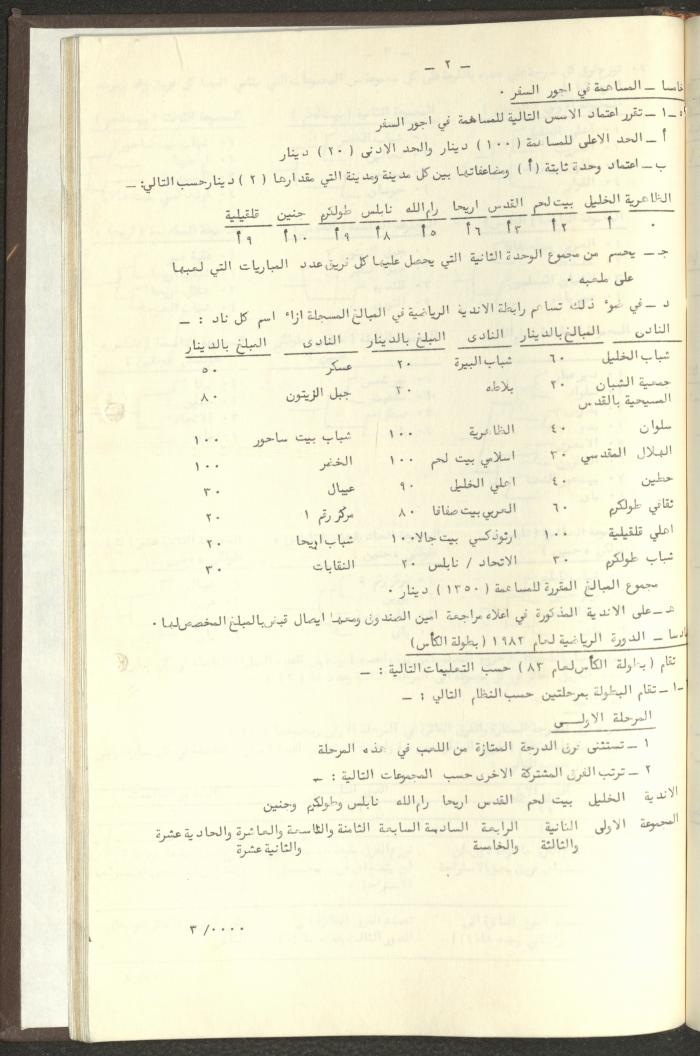 - ٢ -
خامسا - المساهمة في اجور السفر .
٥-١ - تقرر اعتماد الاسس التالية للمساهمة في اجور السفر
أ - الحد الاعلى للمساهمة ( ١٠٠ ) دينار والحد الادنى ( ٢٠ ) دينار
ب - اعتماد وحدة ثابتة ( أ ) ومضاعفاتها بين كل مدينة ومدينة التي مقدارها ( ٢ ) دينار حسب التالي: -
الظاهرية الخليل بيت لحم القدس اريحا رام الله نابلس طولكرم جنين قلقيلية
٠ أ ٢أ ٣أ ٦أ ٥أ ٨أ ٩أ ١٠أ ٩أ
جـ - يحسم من مجموع الوحدة الثانية التي يحصل عليها كل فريق عدد المباريات التي لعبها
على ملعبه .
د - في ضوء ذلك تساهم رابطة الاندية الرياضية في المبالغ المسجلة ازاء اسم كل ناد : -
النادى المبالغ بالدينار النادى المبلغ بالدينار النادى المبلغ بالدينار
شباب الخليل ٦٠ شباب البيرة ٢٠ عسكر ٥٠
جمعية الشبان ٢٠ بلاطه ٢٠ جبل الزيتون ٨٠
المسيحية بالقدس
سلوان ٤٠ الظاهرية ١٠٠ شباب بيت ساحور ١٠٠
الهلال المقدسي ٣٠ اسلامي بيت لحم ١٠٠ الخضر ١٠٠
حطين ٤٠ اهلي الخليل ٩٠ عيبال ٣٠
ثقافي طولكرم ٦٠ العربي بيت صفافا ٨٠ مركز رقم ١ ٢٠
اهلي قلقيلية ١٠٠ ارثوذكسي بيت جالا ١٠٠ شباب اريحا ٢٠
شباب طولكرم ٣٠ الاتحاد / نابلس ٢٠ النقابات ٣٠
مجموع المبالغ المقررة للمساهمة ( ١٣٥٠ ) دينار .
هـ - على الاندية المذكورة في اعلاه مراجعة امين الصندوق ومعها ايصال قبض بالمبلغ المخصص لها .
سادسا - الدورة الرياضية لعام ١٩٨٣ ( بطولة الكأس )
تقام ( بطولة الكأس لعام ٨٣ ) حسب التعليمات التالية : -
-١ - تقام البطولة بمرحلتين حسب النظام التالي : -
المرحلة الاولى
١ - تستثنى فرق الدرجة الممتازة من اللعب في هذه المرحلة
٢ - ترتب الفرق المشتركة الاخرى حسب المجموعات التالية : -
الاندية الخليل بيت لحم القدس اريحا رام الله نابلس وطولكرم وجنين
المجموعة الاولى الثانية الرابعة السادسة السابعة الثامنة والتاسعة والعاشرة والحادية عشرة
والثالثة والخامسة والثانية عشرة
٣ /٠٠٠٠